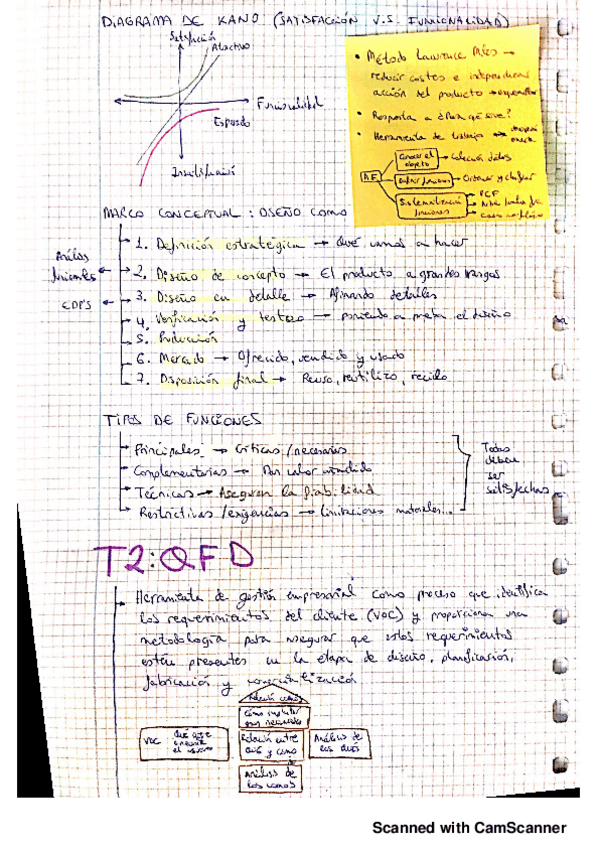 DIAGRAMA DE KANO (SATISFACCIÓN V.S. FUNCIONALIDAD)
Satisfacción
Atractivo
Funcionalidad
Esperado
Insatisfacción
• Método Lawrence Miles →
reducir costes e
acción del producto →
• Responta a ¿Para qué sirve?
• Herramienta de trabajo →
A.F.
Conocer el objeto → colección datos
Definir funciones → Ordenar y clasificar
Sistematización funciones → PCF
MARCO CONCEPTUAL: DISEÑO COMO
1. Definición estratégica → Qué vamos a hacer
Análisis funcionales ← 2. Diseño de concepto → El producto a grandes rasgos
EDPS ← 3. Diseño en detalle → Afinando detalles
4. Verificación y testeo → poniendo a prueba el diseño
5. Producción
6. Mercado → Ofrecido, vendido y usado
7. Disposición final → Reuso, reutilizo, reciclo
TIPOS DE FUNCIONES
Principales → Críticas/necesarias
Complementarias → Dan valor añadido
Técnicas → Aseguran la fiabilidad
Restrictivas/exigencias → Limitaciones materiales...
Todas deben ser satisfechas
T2: QFD
Herramienta de gestión empresarial como proceso que identifica
los requerimientos del cliente (VOC) y proporciona una
metodología para asegurar que estos requerimientos
estén presentes en la etapa de diseño, planificación,
fabricación y comercialización
Relación comos
VOC
Relación entre qué y como
Análisis de los qués
Análisis de los comos
Scanned with CamScanner